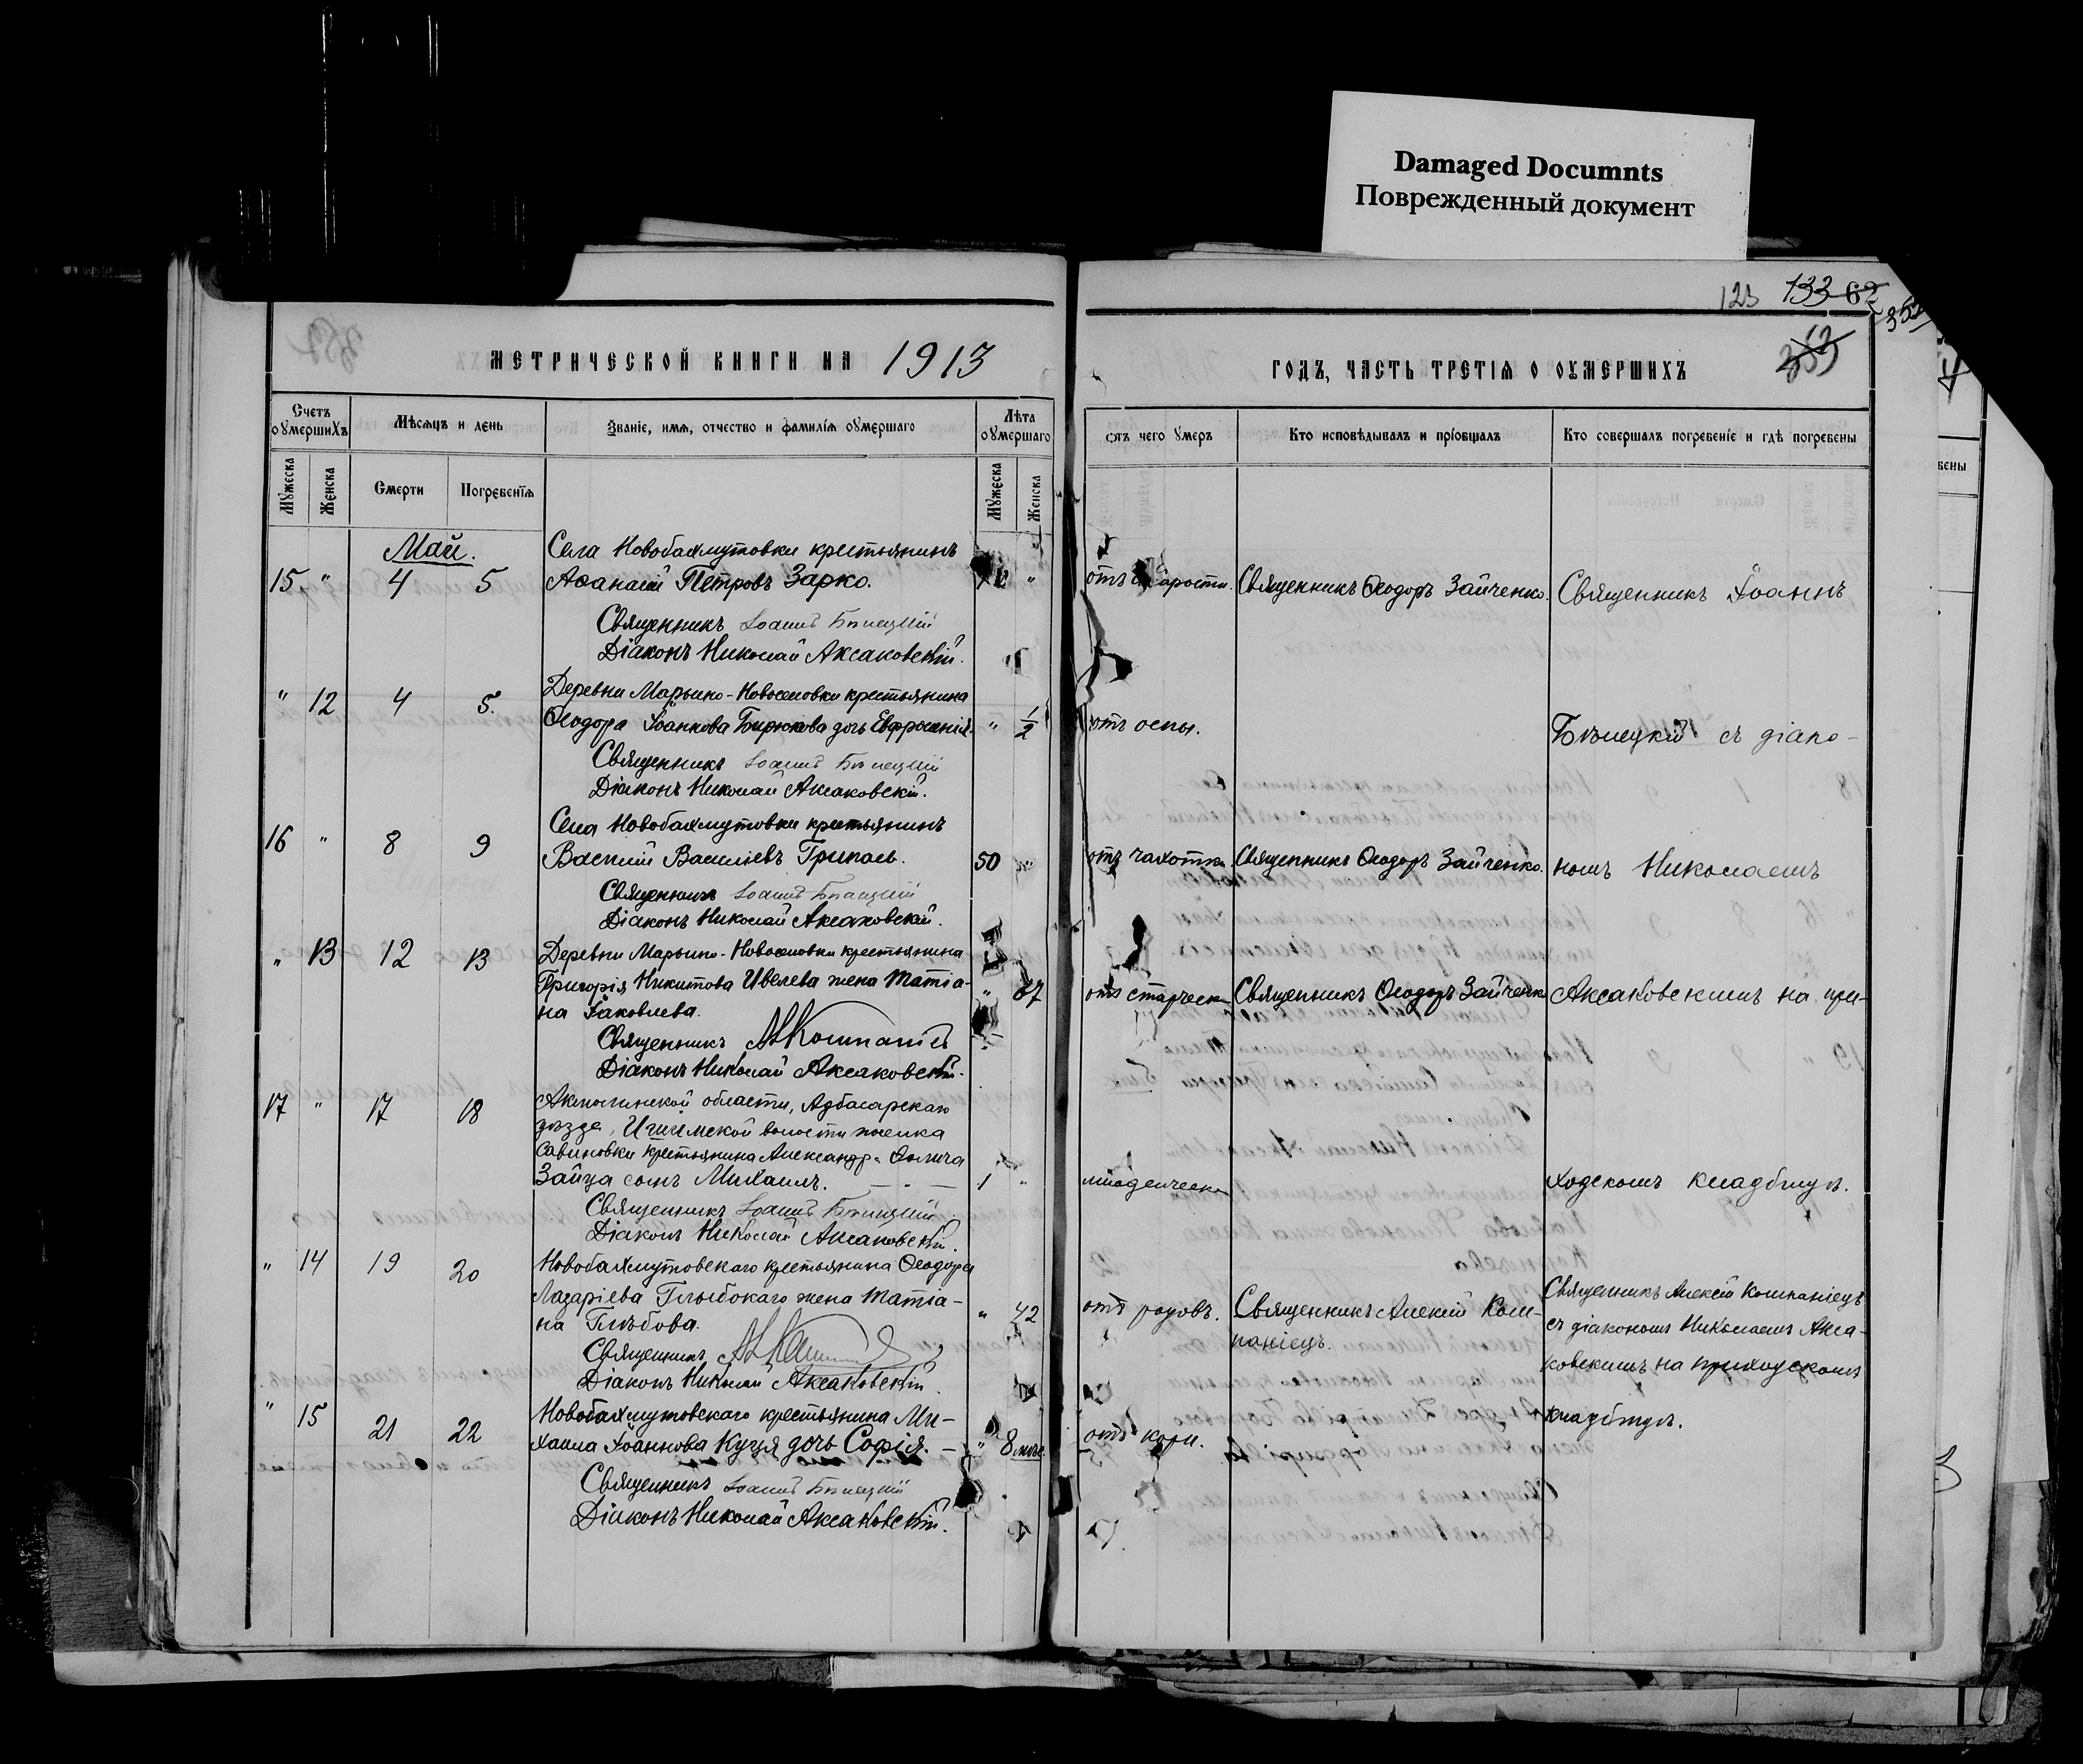 Damaged Documnts
Поврежденный документ
123 133 62
353
МЕТРИЧЕСКОЙ КНИГИ НА 1913
ГОДЪ, ЧАСТЬ ТРЕТІЯ О ОУМЕРШИХЪ
Счетъ оумершихъ
Мѣсяцъ и день
Званіе, имя, отчество и фамилія оумершаго
Лѣта оумершаго
отъ чего умеръ
Кто исповѣдывалъ и пріобщалъ
Кто совершалъ погребеніе и гдѣ погребены
Мужеска
Женска
Смерти
Погребенія
Мужеска
Женска
Май.
Села Новобахмутовки крестьянинъ
15 " 4 5 Аѳанасій Петровъ Зарко. "
отъ старости. Священникъ Ѳеодоръ Зайченко. Священникъ Іоаннъ
Священникъ Іоаннъ Бѣлецкій
Діаконъ Николай Аксаковскій.
Деревни Марьино-Новоселовки крестьянина
" 12 4 5. Ѳеодора Іоаннова Бирюкова дочь Евфросинія. " 1/2
отъ оспы. Бѣлецкій съ діако-
Священникъ Іоаннъ Бѣлецкій
Діаконъ Николай Аксаковскій.
Села Новобахмутовки крестьянинъ
16 " 8 9 Василій Василіевъ 50 "
отъ чахотки Священникъ Ѳеодоръ Зайченко. номъ Николаемъ
Священникъ Іоаннъ Бѣлецкій
Діаконъ Николай Аксаковскій.
Деревни Марьино-Новоселовки крестьянина
" 13 12 13 Григорія Никитова Ивелева жена Татіа- " 67
на Іаковлева.
отъ старческ Священникъ Ѳеодоръ Зайченко Аксаковскимъ на при-
Священникъ АКомпаніецъ
Діаконъ Николай Аксаковскій.
Акмолинской области, Адбасарскаго
17 " 17 18 уѣзда, Ишимской волости поселка
Савиновки крестьянина Александра
Зайца сынъ Михаилъ. — " — 1 "
младенческ ходскомъ кладбищѣ.
Священникъ Іоаннъ Бѣлецкій
Діаконъ Николай Аксаковскій.
" 14 19 20 Новобахмутовскаго крестьянина Ѳеодора
Лазаріева Глыбокаго жена Татіа- " 42
на Глѣбова.
отъ родовъ. Священникъ Алексій Ком-
паніецъ.
Священникъ Алексій Компаніецъ
съ діакономъ Николаемъ Акса-
ковскимъ на приходскомъ
кладбищѣ.
Священникъ
Діаконъ Николай Аксаковскій.
" 15 21 22 Новобахмутовскаго крестьянина Ми-
хаила Іоаннова Куця дочь Софія. — " 8 мѣс.
отъ кори.
Священникъ Іоаннъ Бѣлецкій
Діаконъ Николай Аксаковскій.